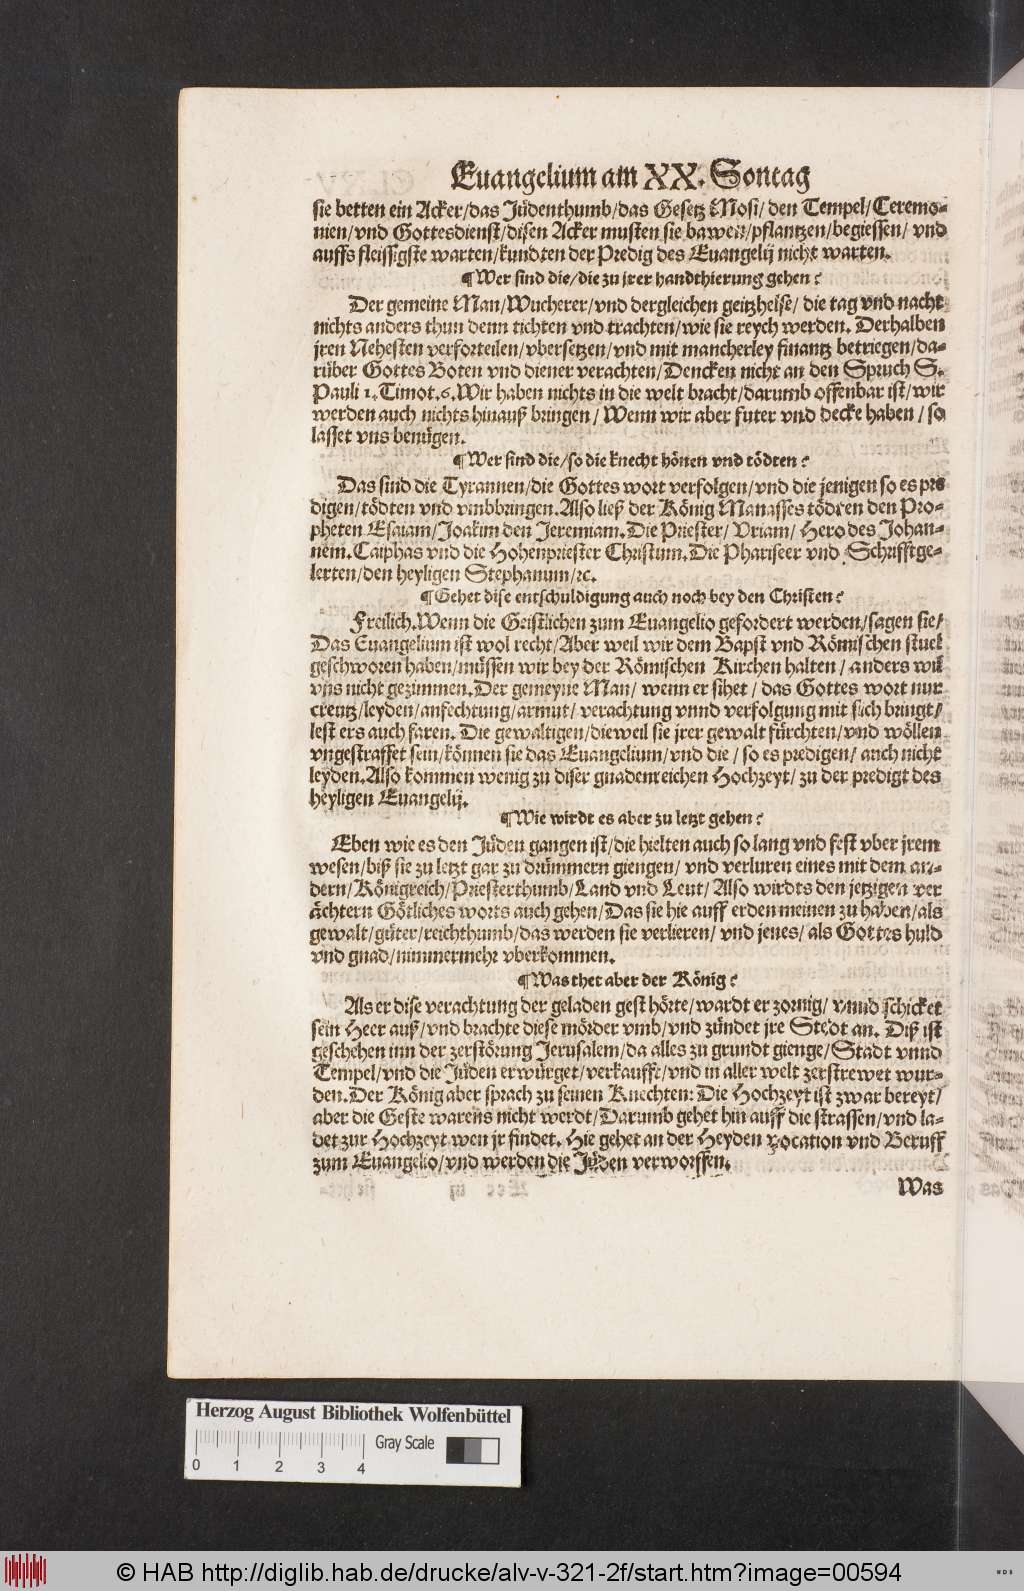 Euangelium am XX. Sontag
sie hetten ein Acker/das Jüdenthumb/das Gesetz Mosi/ den Tempel/Ceremo-
nien/vnd Gottesdienst/disen Acker musten sie bawen/pflantzen/begiessen/ vnd
auffs fleissigste warten/kundten der Predig des Euangelij nicht warten.
¶Wer sind die/die zu jrer handthierung gehen?
Der gemeine Man/Wucherer/vnd dergleichen geitzhelse/ die tag vnd nacht
nichts anders thun denn tichten vnd trachten/wie sie reych werden. Derhalben
jren Nehesten verforteilen/vbersetzen/vnd mit mancherley finantz betriegen/da-
rüber Gottes Boten vnd diener verachten/Dencken nicht an den Spruch S.
Pauli 1. Timot. 6. Wir haben nichts in die welt bracht/darumb offenbar ist/wir
werden auch nichts hinauß bringen/ Wenn wir aber futer vnd decke haben/ so
lasset vns benügen.
¶Wer sind die/so die knecht hönen vnd tödten?
Das sind die Tyrannen/die Gottes wort verfolgen/vnd die jenigen so es pre
digen/tödten vnd vmbbringen. Also ließ der König Manasses tödten den Pro-
pheten Esaiam/Joakim den Jeremiam. Die Priester/ Vriam/ Herodes Johan-
nem. Caiphas vnd die Hohenpriester Christum. Die Phariseer vnd Schrifftge-
lerten/den heyligen Stephanum/ꝛc.
¶Gehet dise entschuldigung auch noch bey den Christen?
Freilich. Wenn die Geistlichen zum Euangelio gefordert werden/sagen sie/
Das Euangelium ist wol recht/Aber weil wir dem Bapst vnd Römischen stuel
geschworen haben/müssen wir bey der Römischen Kirchen halten/ anders wil
vns nicht gezimmen. Der gemeyne Man/ wenn er sihet/ das Gottes wort nur
creutz/leyden/anfechtung/armut/ verachtung vnnd verfolgung mit sich bringt/
lest ers auch faren. Die gewaltigen/dieweil sie jrer gewalt fürchten/vnd wöllen
vngestraffet sein/können sie das Euangelium/vnd die/ so es predigen/ auch nicht
leyden. Also kommen wenig zu diser gnadenreichen Hochzeyt/ zu der predigt des
heyligen Euangelij.
¶Wie wirdt es aber zu letzt gehen?
Eben wie es den Jüden gangen ist/die hielten auch so lang vnd fest vber jrem
wesen/biß sie zu letzt gar zu drümmern giengen/ vnd verluren eines mit dem an-
dern/Königreich/Priesterthumb/Land vnd Leut/Also wirdts den jetzigen ver
ächtern Götliches worts auch gehen/Das sie hie auff erden meinen zu haben/als
gewalt/güter/reichthumb/das werden sie verlieren/ vnd jenes/ als Gottes huld
vnd gnad/nimmermehr vberkommen.
¶Was thet aber der König?
Als er dise verachtung der geladen gest hörte/wardt er zornig/ vnnd schicket
sein Heer auß/vnd brachte diese mörder vmb/vnd zündet jre Stedt an. Diß ist
geschehen inn der zerstörung Jerusalem/da alles zu grundt gienge/Stadt vnnd
Tempel/vnd die Jüden erwürget/verkaufft/vnd in aller welt zerstrewet wur-
den. Der König aber sprach zu seinen Knechten: Die Hochzeyt ist zwar bereyt/
aber die Geste warens nicht werdt/Darumb gehet hin auff die strassen/vnd la-
det zur Hochzeyt wen jr findet. Hie gehet an der Heyden vocation vnd Beruff
zum Euangelio/vnd werden die Jüden verworffen.
Was
Herzog August Bibliothek Wolfenbüttel
Gray Scale
0 1 2 3 4
© HAB http://diglib.hab.de/drucke/alv-v-321-2f/start.htm?image=00594